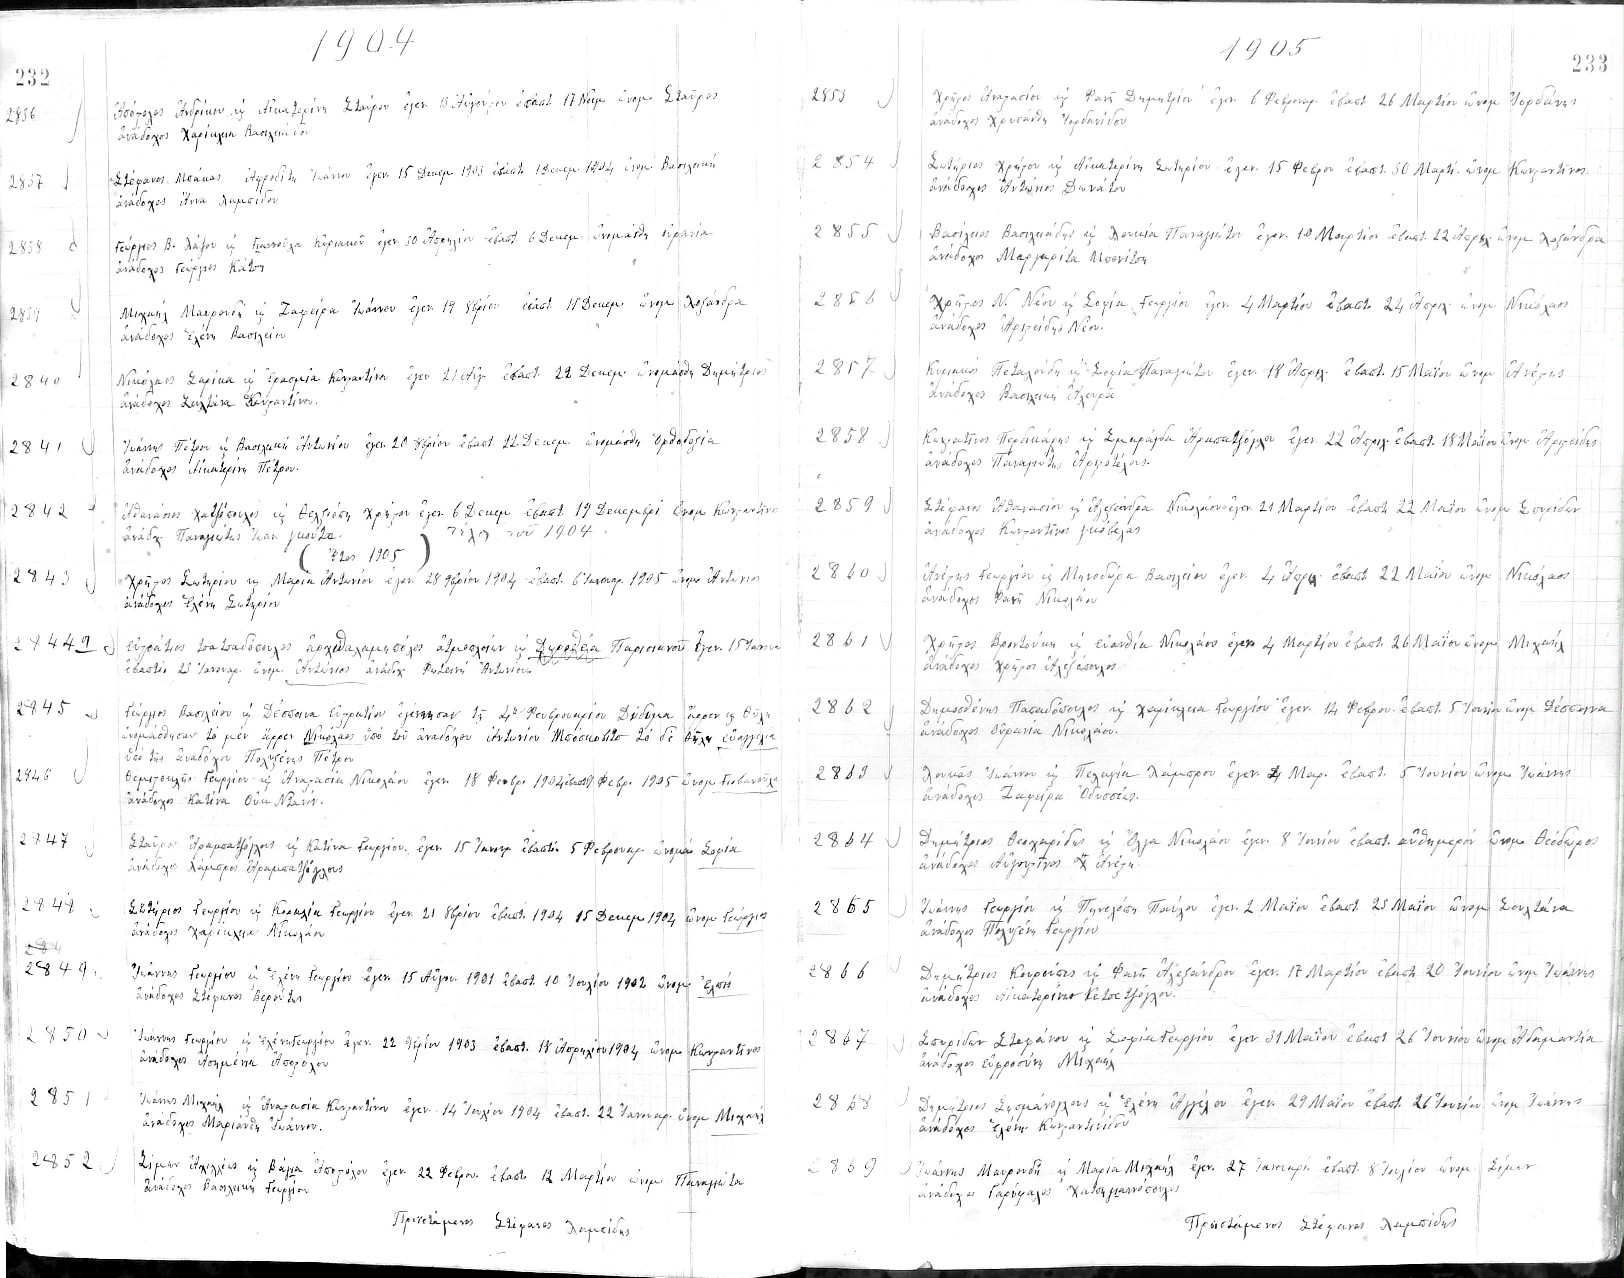 1904
232
2836 Ἀπόστολος Ἀνδρέου κ Αἰκατερίνη Σταύρου ἐγεν. 13 Αὐγούστου ἐβαπτ 17 Νοεμ ὠνομ Σταῦρος
ἀνάδοχος Χαρίκλεια Βασιλειάδου
2837 Στέφανος Ἀφροδίτη Ἰωάννου ἐγεν 15 Δεκεμ 1903 ἐβαπτ 1 Δεκεμ 1904 ὠνομ Βασιλική
ἀνάδοχος Ἄννα Λαμπίδου
2838 Γεώργιος Β. Λάζου κ Γιαννούλα Κυριακοῦ ἐγεν 30 Ἀπριλίου ἐβαπτ 6 Δεκεμ ὠνομάσθη οὐρανία
ἀνάδοχος Γεώργιος Κάτση
2839 Μιχαήλ Μαυρουδῆ κ Ζαφείρα Ἰωάννου ἐγεν 19 8βρίου ἐβαπτ 15 Δεκεμ ὠνομ Λοξάνδρα
ἀνάδοχος Ἑλένη Βασιλείου
2840 Νικόλαος Σαρίκα κ Ἐρασμία Κωνσταντίνου ἐγεν 21 Αὐγ. ἐβαπτ. 22 Δεκεμ ὠνομάσθη Δημήτριος
ἀνάδοχος Σουλτάνα Κωνσταντίνου.
2841 Ἰωάννης Πέτρου κ Βασιλική Ἀντωνίου ἐγεν 20 8βρίου ἐβαπτ 22 Δεκεμ ὠνομάσθη Ὀρθοδοξία
ἀνάδοχος Αἰκατερίνη Πέτρου.
2842 Ἀθανάσιος Χατζόπουλος κ Θελξιόπη Χρήστου ἐγεν 6 Δεκεμ ἐβαπτ 19 Δεκεμβρί ὠνομ Κωνσταντῖνο
ἀνάδχ Παναγιώτης Ἰωαν. Γκούτα. τέλος τοῦ 1904.
(Ἔτος 1905)
2843 Χρῆστος Σωτηρίου κ Μαρία Ἀντωνίου ἐγεν 28 9βρίου 1904 ἐβαπτ. 6 Ἰανουαρ. 1905 ὠνομ Ἀντώνιος
ἀνάδοχος Ἑλένη Σωτηρίου
2844 Εὐστράτιος Παπαδόπουλος ἀρχιθαλαμηπόλος ἀτμοπλοίων κ Παρισιανοῦ ἐγεν. 15 Ἰανου
ἐβαπτίσ 23 Ἰανουαρ. ὠνομ Ἀντώνιος ἀνάδχ Φωτεινή Ἀντωνίου
2845 Γεώργιος Βασιλείου κ Δέσποινα Εὐστρατίου ἐγέννησαν τῇ 4ῃ Φευβρουαρίου Δίδυμα ἄρρεν κ θῆλυ
ὠνομάσθησαν τό μέν ἄρρεν Νικόλαος ὑπό τοῦ ἀναδόχου Ἀντωνίου τό δε θῆλυ εὐαγγελία
ὑπό τῆς ἀναδόχου Πολυξένης Πέτρου
2846 Θεμιστοκλῆς Γεωργίου κ Ἀναστασία Νικολάου ἐγεν. 18 Φευβρ. 1904 ἐβαπτ Φεβρ. 1905 ὠνομ Γιοβανοῦλα
ἀνάδοχος Κατίνα
2847 Σταῦρος Ἀραμπατζόγλους κ Κατίνα Γεωργίου, ἐγεν. 15 Ἰανουρ ἐβαπτίσ 5 Φεβρουαρ. ὠνομά Σοφία
ἀνάδοχος Λάμπρος Ἀραμπατζόγλους
2848 Σωτήριος Γεωργίου κ Κοραλία Γεωργίου ἐγεν. 21 8βρίου ἐβαπτ. 1904 15 Δεκεμ 1904 ὠνομ Γεώργιος
ἀνάδοχος Χαρίκλεια Νικολάου
2849 Ἰωάννης Γεωργίου κ Ἑλένη Γεωργίου ἐγεν. 15 Αὐγου. 1901 ἐβαπτ 10 Ἰουλίου 1902 ὠνομ Ἐλπίς
ἀνάδοχος Στέφανος Βερούτης
2850 Ἰωάννης Γεωργίου κ Ἑλένη Γεωργίου ἐγεν. 22 9βρίου 1903 ἐβαπτ. 18 Ἀπριλίου 1904 ὠνομ Κωνσταντῖνος
ἀνάδοχος Ἀσημένια Ἀποστόλου
2851 Ἰωάννης Μιχαήλ κ Ἀναστασία Κωνσταντίνου ἐγεν. 14 Ἰουλίου 1904 ἐβαπτ. 22 Ἰανουαρ. ὠνομ Μιχαήλ
ἀνάδοχος Μαριάνθη Ἰωάννου.
2852 Σίμων Ἀχιλλέως κ Βάγια Ἀποστόλου ἐγεν. 22 Φεβρου. ἐβαπτ. 12 Μαρτίου ὠνομ Παναγιώτα
ἀνάδοχος Βασιλική Γεωργίου
Προϊστάμενος Στέφανος Λαμπίδης
1905
233
2853 Χρῆστος Ἀναστασίου κ Φανή Δημητρίου ἐγεν. 6 Φεβρουαρ. ἐβαπτ 26 Μαρτίου ὠνομ Ἰορδάνης
ἀνάδοχος Χρυσάνθη Ἰορδανίδου
2854 Σωτήριος Χρήστου κ Αἰκατερίνη Σωτηρίου ἐγεν. 15 Φεβρου ἐβαπτ. 30 Μαρτ. ὠνομ Κωνσταντῖνος
ἀνάδοχος Ἀντώνιος Δωνάτου
2855 Βασίλειος Βασιλειάδης κ Λουκία Παναγιώτου ἐγεν. 10 Μαρτίου ἐβαπτ. 22 Ἀπριλ ὠνομ Λοξάνδρα
ἀνάδοχος Μαργαρίτα
2856 Χρῆστος Ν. Νέου κ Σοφία Γεωργίου ἐγεν. 4 Μαρτίου ἐβαπτ 24 Ἀπριλ ὠνομ Νικόλαος
ἀνάδοχος Ἀριστείδης Νέου.
2857 Κυριακός Πεταλούδη κ Σοφία Παναγιώτου ἐγεν. 18 Ἀπριλ. ἐβαπτ. 15 Μαΐου ὠνομ Ἀνέστης
ἀνάδοχος Βασιλική
2858 Κωνσταντῖνος Περδικάρης κ Σμαράγδα Ἀραπατζόγλου ἐγεν. 22 Ἀπριλ. ἐβαπτ. 18 Μαΐου ὠνομ Ἀριστείδης.
ἀνάδοχος Παναγιώτης Ἀριστοτέλους.
2859 Στέφανος Ἀθανασίου κ Ἀλεξάνδρα Νικολάου ἐγεν. 21 Μαρτίου ἐβαπτ 22 Μαΐου ὠνομ Σπυρίδων
ἀνάδοχος Κωνσταντῖνος
2860 Ἀνέστης Γεωργίου κ Μηνοδώρα Βασιλείου ἐγεν. 4 Ἀπριλ. ἐβαπτ 22 Μαΐου ὠνομ Νικόλαος
ἀνάδοχος Φανή Νικολάου
2861 Χρῆστος κ εὐανθία Νικολάου ἐγεν 4 Μαρτίου ἐβαπτ 26 Μαΐου ὠνομ Μιχαήλ
ἀνάδοχος Χρῆστος Ἀλεξόπουλος
2862 Δημοσθένης Παπαδόπουλος κ Χαρίκλεια Γεωργίου ἐγεν. 14 Φεβρου. ἐβαπτ 5 Ἰουνίου ὠνομ Δέσποινα
ἀνάδοχος Οὐρανία Νικολάου.
2863 Λουκᾶς Ἰωάννου κ Πελαγία Λάμπρου ἐγεν. 4 Μαρ. ἐβαπτ. 5 Ἰουνίου ὠνομ Ἰωάννης
ἀνάδοχος Ζαφείρα Ὀδυσσέως.
2864 Δημήτριος Θεοχαρίδης κ Ὄλγα Νικολάου ἐγεν. 8 Ἰουνίου ἐβαπτ. αὐθημερόν ὠνομ Θεόδωρος
ἀνάδοχος Αὐγουστῖνος Χ Ἀνέστη
2865 Ἰωάννης Γεωργίου κ Πηνελόπη Παύλου ἐγεν. 2 Μαΐου ἐβαπτ 25 Μαΐου ὠνομ Σουλτάνα
ἀνάδοχος Πολυξένη Γεωργίου
2866 Δημήτριος Κουρούσης κ Φανή Ἀλεξάνδρου ἐγεν. 17 Μαρτίου ἐβαπτ 20 Ἰουνίου ὠνομ Ἰωάννης
ἀνάδοχος Αἰκατερίνη
2867 Σπυρίδων Στεφάνου κ Σοφία Γεωργίου ἐγεν 31 Μαΐου ἐβαπτ 26 Ἰουνίου ὠνομ Ἀδαμαντία
ἀνάδοχος εὐφροσύνη Μιχαήλ
2868 Δημήτριος Σισμάνογλους κ Ἑλένη Ἀγγέλου ἐγεν. 29 Μαΐου ἐβαπτ. 26 Ἰουνίου ὠνομ Ἰωάννης
ἀνάδοχος Ἑλένη Κωνσταντινίδου
2869 Ἰωάννης Μαυρουδῆ κ Μαρία Μιχαήλ ἐγεν. 27 Ἰανουαρ. ἐβαπτ. 8 Ἰουλίου ὠνομ Σίμων
ἀνάδοχος Γαρύφαλος Χατζηγιαννόπουλος
Προϊστάμενος Στέφανος Λαμπίδης